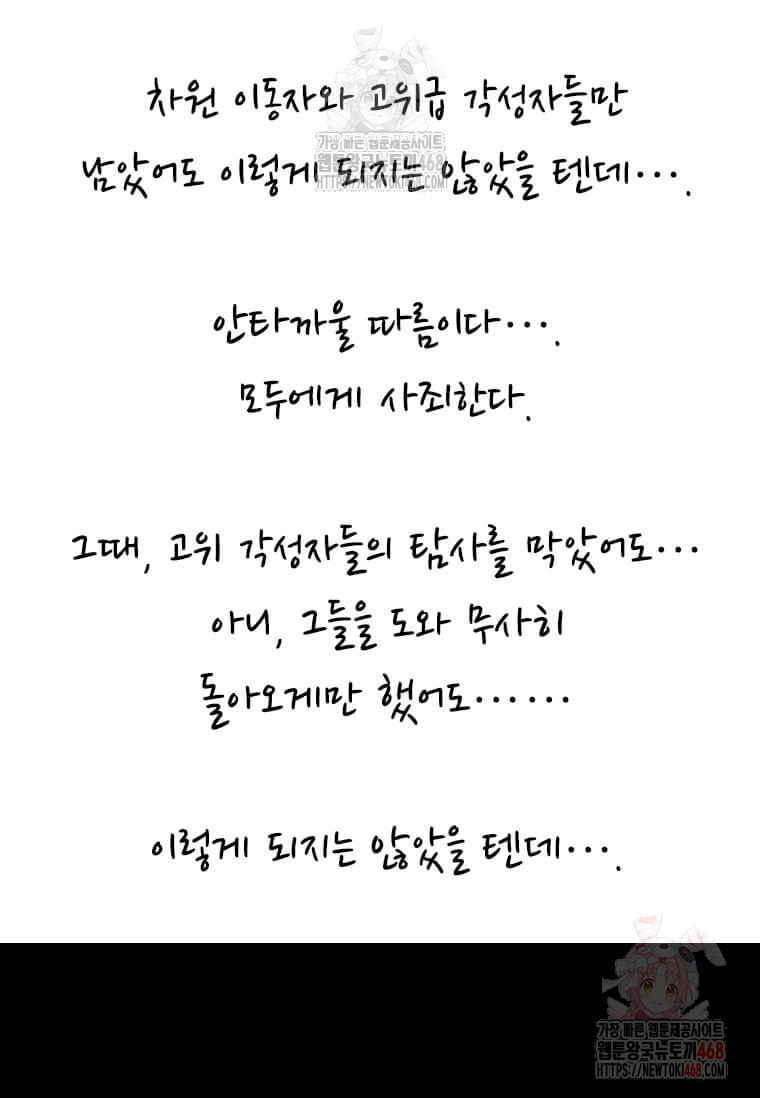 차원 이동자와 고위급 각성자들만
남았어도 이렇게 되지는 않았을 텐데….
안타까울 따름이다….
모두에게 사죄한다.
그때, 고위 각성자들의 탐사를 막았어도…
아니, 그들을 도와 무사히
돌아오게만 했어도……
이렇게 되지는 않았을 텐데….
가장 빠른 웹툰제공사이트
웹툰왕국뉴토끼468
HTTPS://NEWTOKI468.COM
가장 빠른 웹툰제공사이트
웹툰왕국뉴토끼468
HTTPS://NEWTOKI468.COM